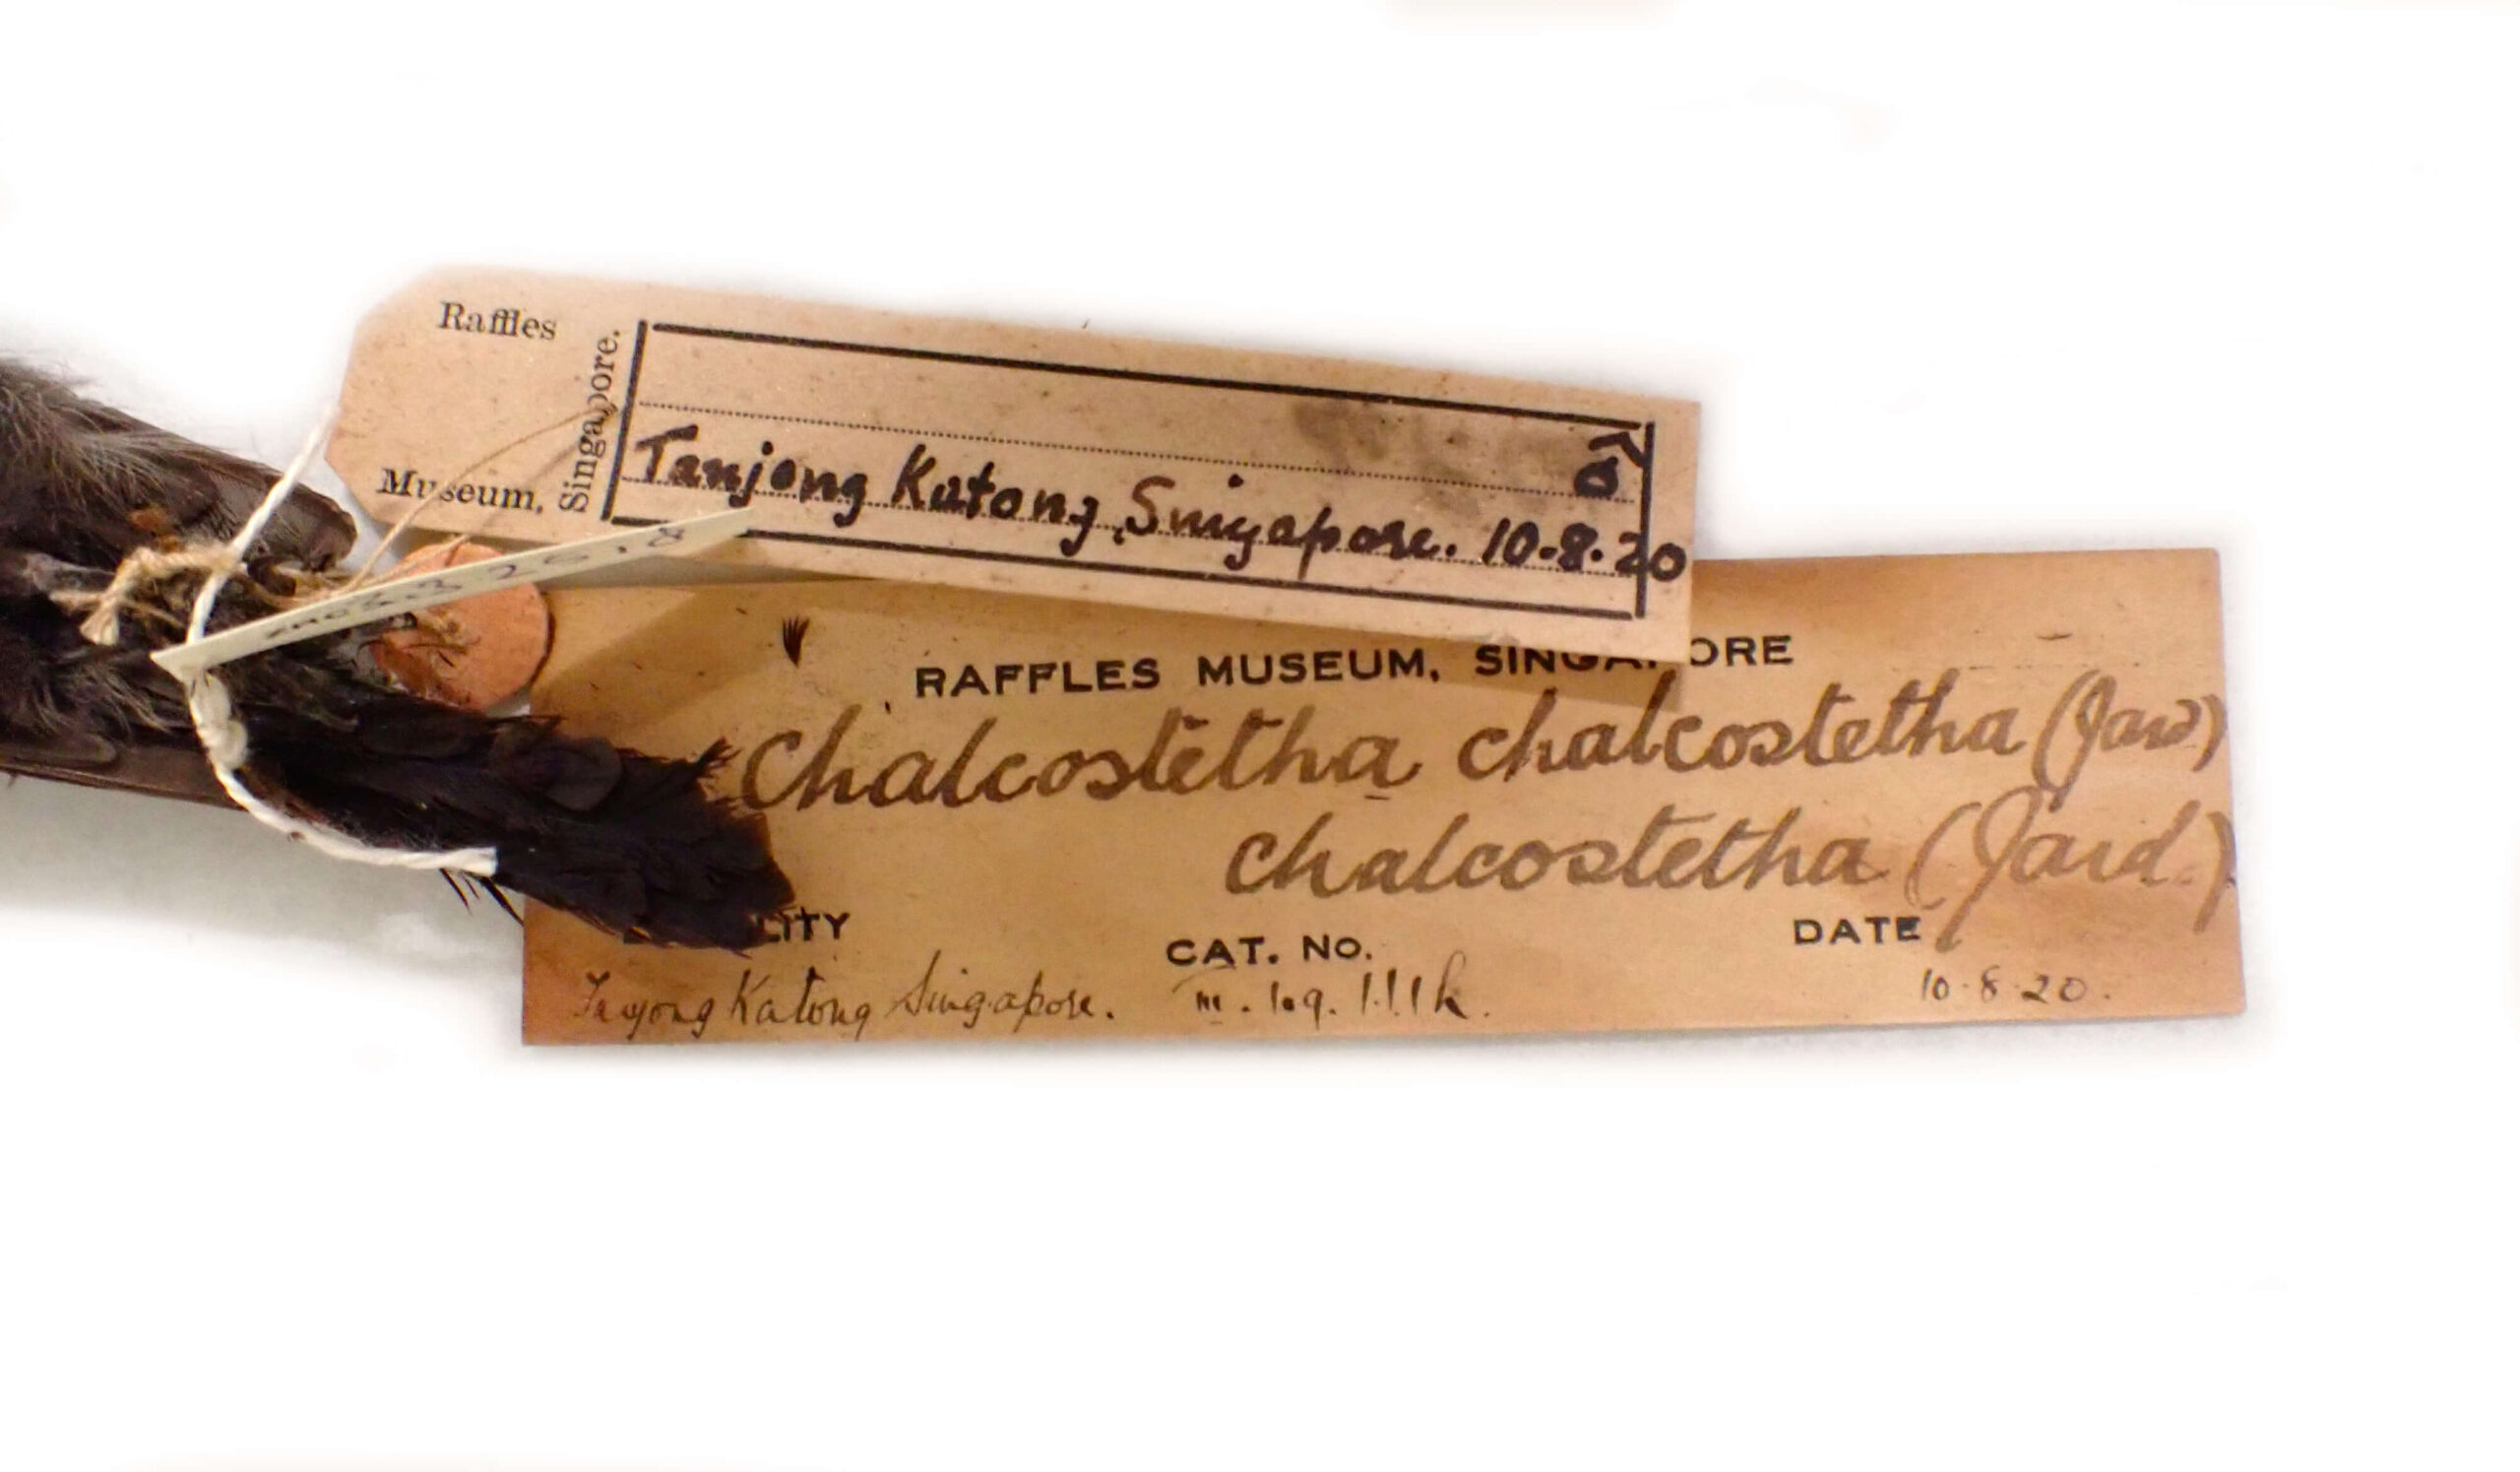 Raffles
Museum,
Singapore.
♂
Tanjong Katong, Singapore. 10.8.20
RAFFLES MUSEUM, SINGAPORE
Chalcostetha chalcostetha (Jard)
chalcostetha (Jard.)
LITY
CAT. No.
DATE
Tanjong Katong Singapore.
III. 109. 111k.
10.8.20.